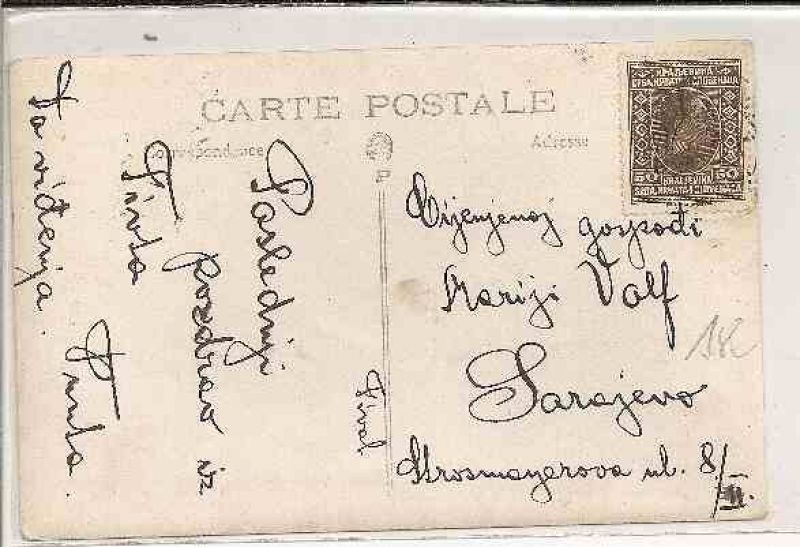 CARTE POSTALE
Correspondance
Adresse
КРАЉЕВИНА
СРБА, ХРВАТА И СЛОВЕНАЦА
50 50
KRALJEVINA
SRBA, HRVATA I SLOVENACA
Poslednji
pozdrav iz
Na viđenja.
Cijenjenoj gospođi
Mariji Volf
Sarajevo
Štrosmayerova ul. 8/II.